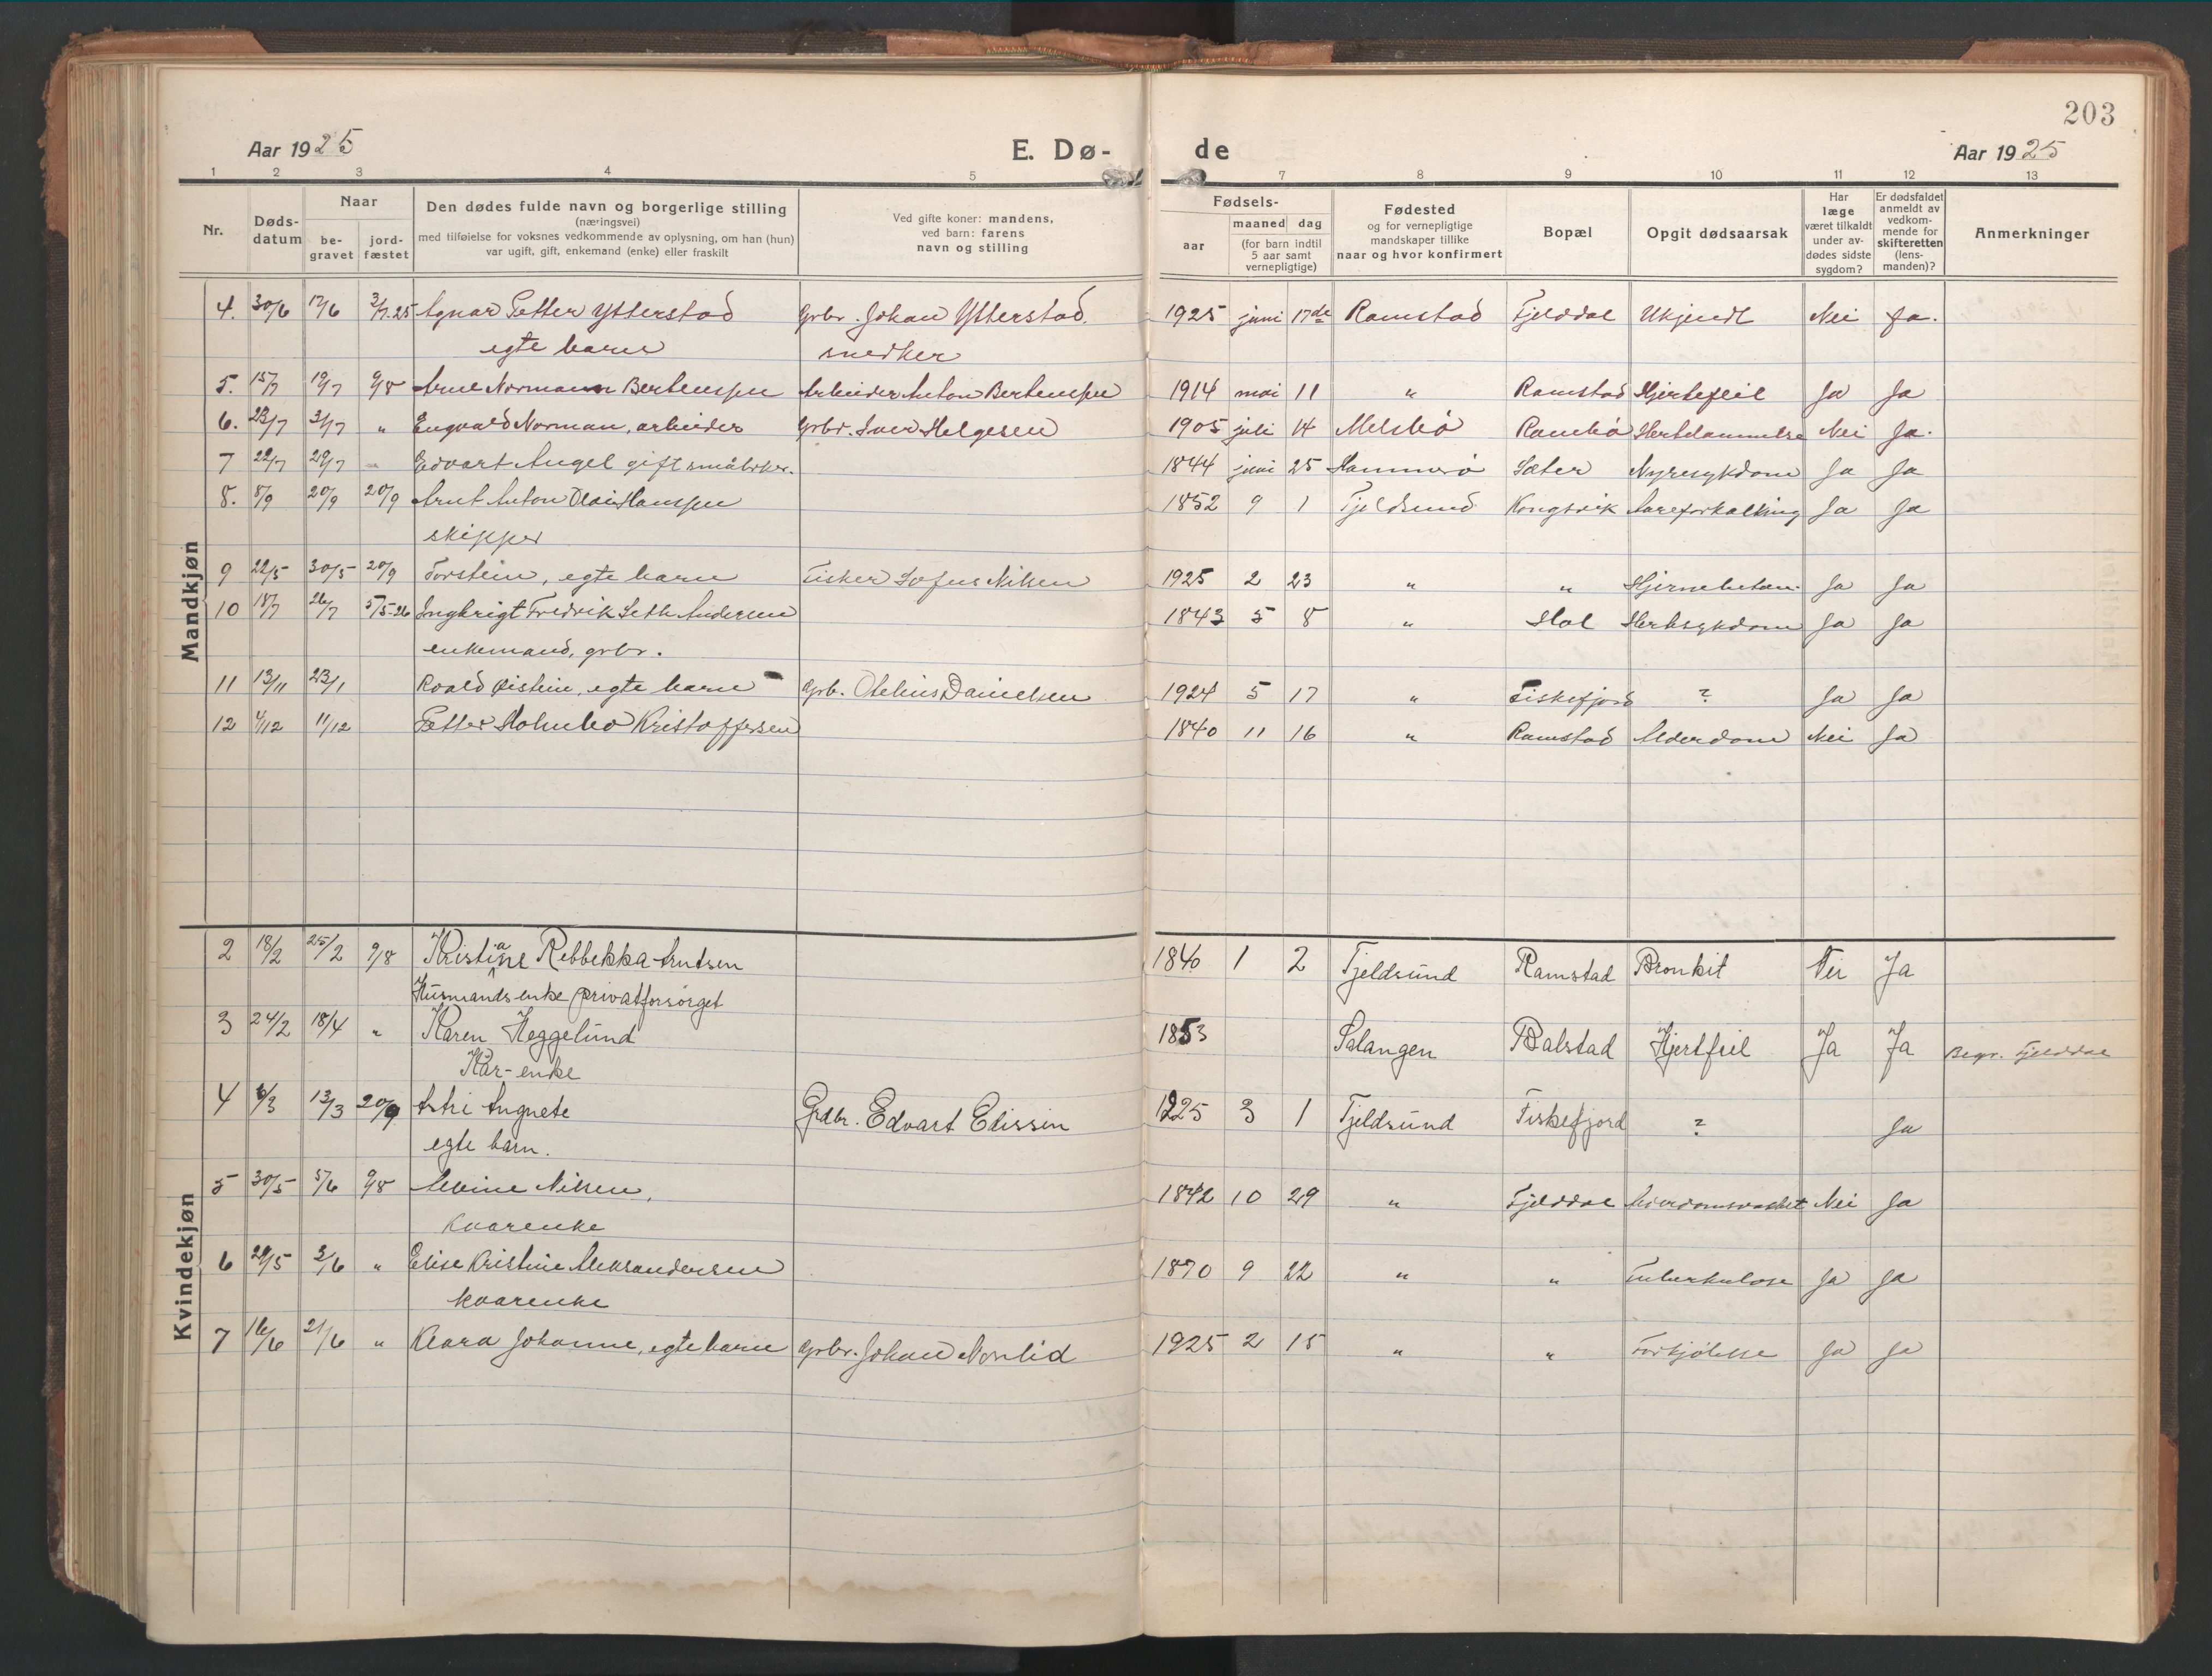 203
Aar 1925 E. Dø- de Aar 1925
1 2 3 4 5 7 8 9 10 11 12 13
Nr. Døds-datum Naar be-gravet jord-fæstet Den dødes fulde navn og borgerlige stilling (næringsvei) med tilføielse for voksnes vedkommende av oplysning, om han (hun) var ugift, gift, enkemand (enke) eller fraskilt Ved gifte koner: mandens, ved barn: farens navn og stilling Fødsels- aar maaned dag (for barn indtil 5 aar samt vernepligtige) Fødested og for vernepligtige mandskaper tillike naar og hvor konfirmert Bopæl Opgit dødsaarsak Har læge været tilkaldt under av-dødes sidste sygdom? Er dødsfaldet anmeldt av vedkom-mende for skifteretten (lens-manden)? Anmerkninger
Mandkjøn
4. 30/6 17/6 3/7.25 Agnar Petter Ytterstad Grbr. Johan Ytterstad. 1925 juni 17de Ramstad Fjelddal Ukjendt Nei Ja.
egte barn snedker
5. 15/7 19/7 9/8 Arne Normann Bertenssen Arbeider Anton Bertenssen 1914 mai 11 " Ramstad Hjertefeil Ja Ja
6. 23/7 31/7 " Engvald Norman, arbeider Grbr. Iver Helgesen 1905 juli 14 Melsbø Ramsbø Nei Ja.
7 22/7 29/7 Edvart Angel gift småbrker. 1844 juni 25 Hammerø Sæter Nyresykdom Ja Ja
8. 8/9 20/9 20/9 Arnt Anton Olai Hanssen 1852 9 1 Tjeldsund Kongsvik Aareforkalkning Ja Ja
skipper
9 22/5 30/5 20/9 Torstein, egte barn Fisker Sofus Nilsen 1925 2 23 " " Hjernebetæn. Ja Ja
10 18/7 26/7 5/5-26 Ingbrigt Fredrik Seth Andersen 1843 5 8 " Hol Hertesykdom Ja Ja
enkemand, grbr.
11 13/11 23/1 Roald Øistein, egte barn Grb. Otelius Danielsen 1924 5 17 " Fiskefjord ? Ja Ja
12 4/12 11/12 Petter Holmbo Kristoffersen 1840 11 16 " Ramstad Alderdom Nei Ja
Kvindekjøn
2 18/2 25/2 9/8 Kristiane Rebbekka Arntsen 1840 1 2 Tjeldsund Ramstad Bronkit Nei Ja
Husmandsenke privatforsørget
3 24/2 18/4 " Karen Heggelund 1853 Salangen Balstad Hjertfeil Ja Ja Begr. Fjelddal
Kår-enke
4 6/3 13/3 20/9 Astri Angnete Grdbr. Edvart Elissen 1925 3 1 Tjeldsund Fiskefjord ? Ja
egte barn.
5 30/5 5/6 9/8 Alvine Nilsen, 1842 10 29 " Fjelddal Alderdomssvakhet Nei Ja
kaarenke
6 29/5 3/6 " Elise Kristine Aleksandersen 1870 9 22 " " Tuberkulose Ja Ja
kaarenke
7 16/6 21/6 " Klara Johanne, egte barn Grbr. Johan Nonlid 1925 2 15 " " Forkjølelse Ja Ja